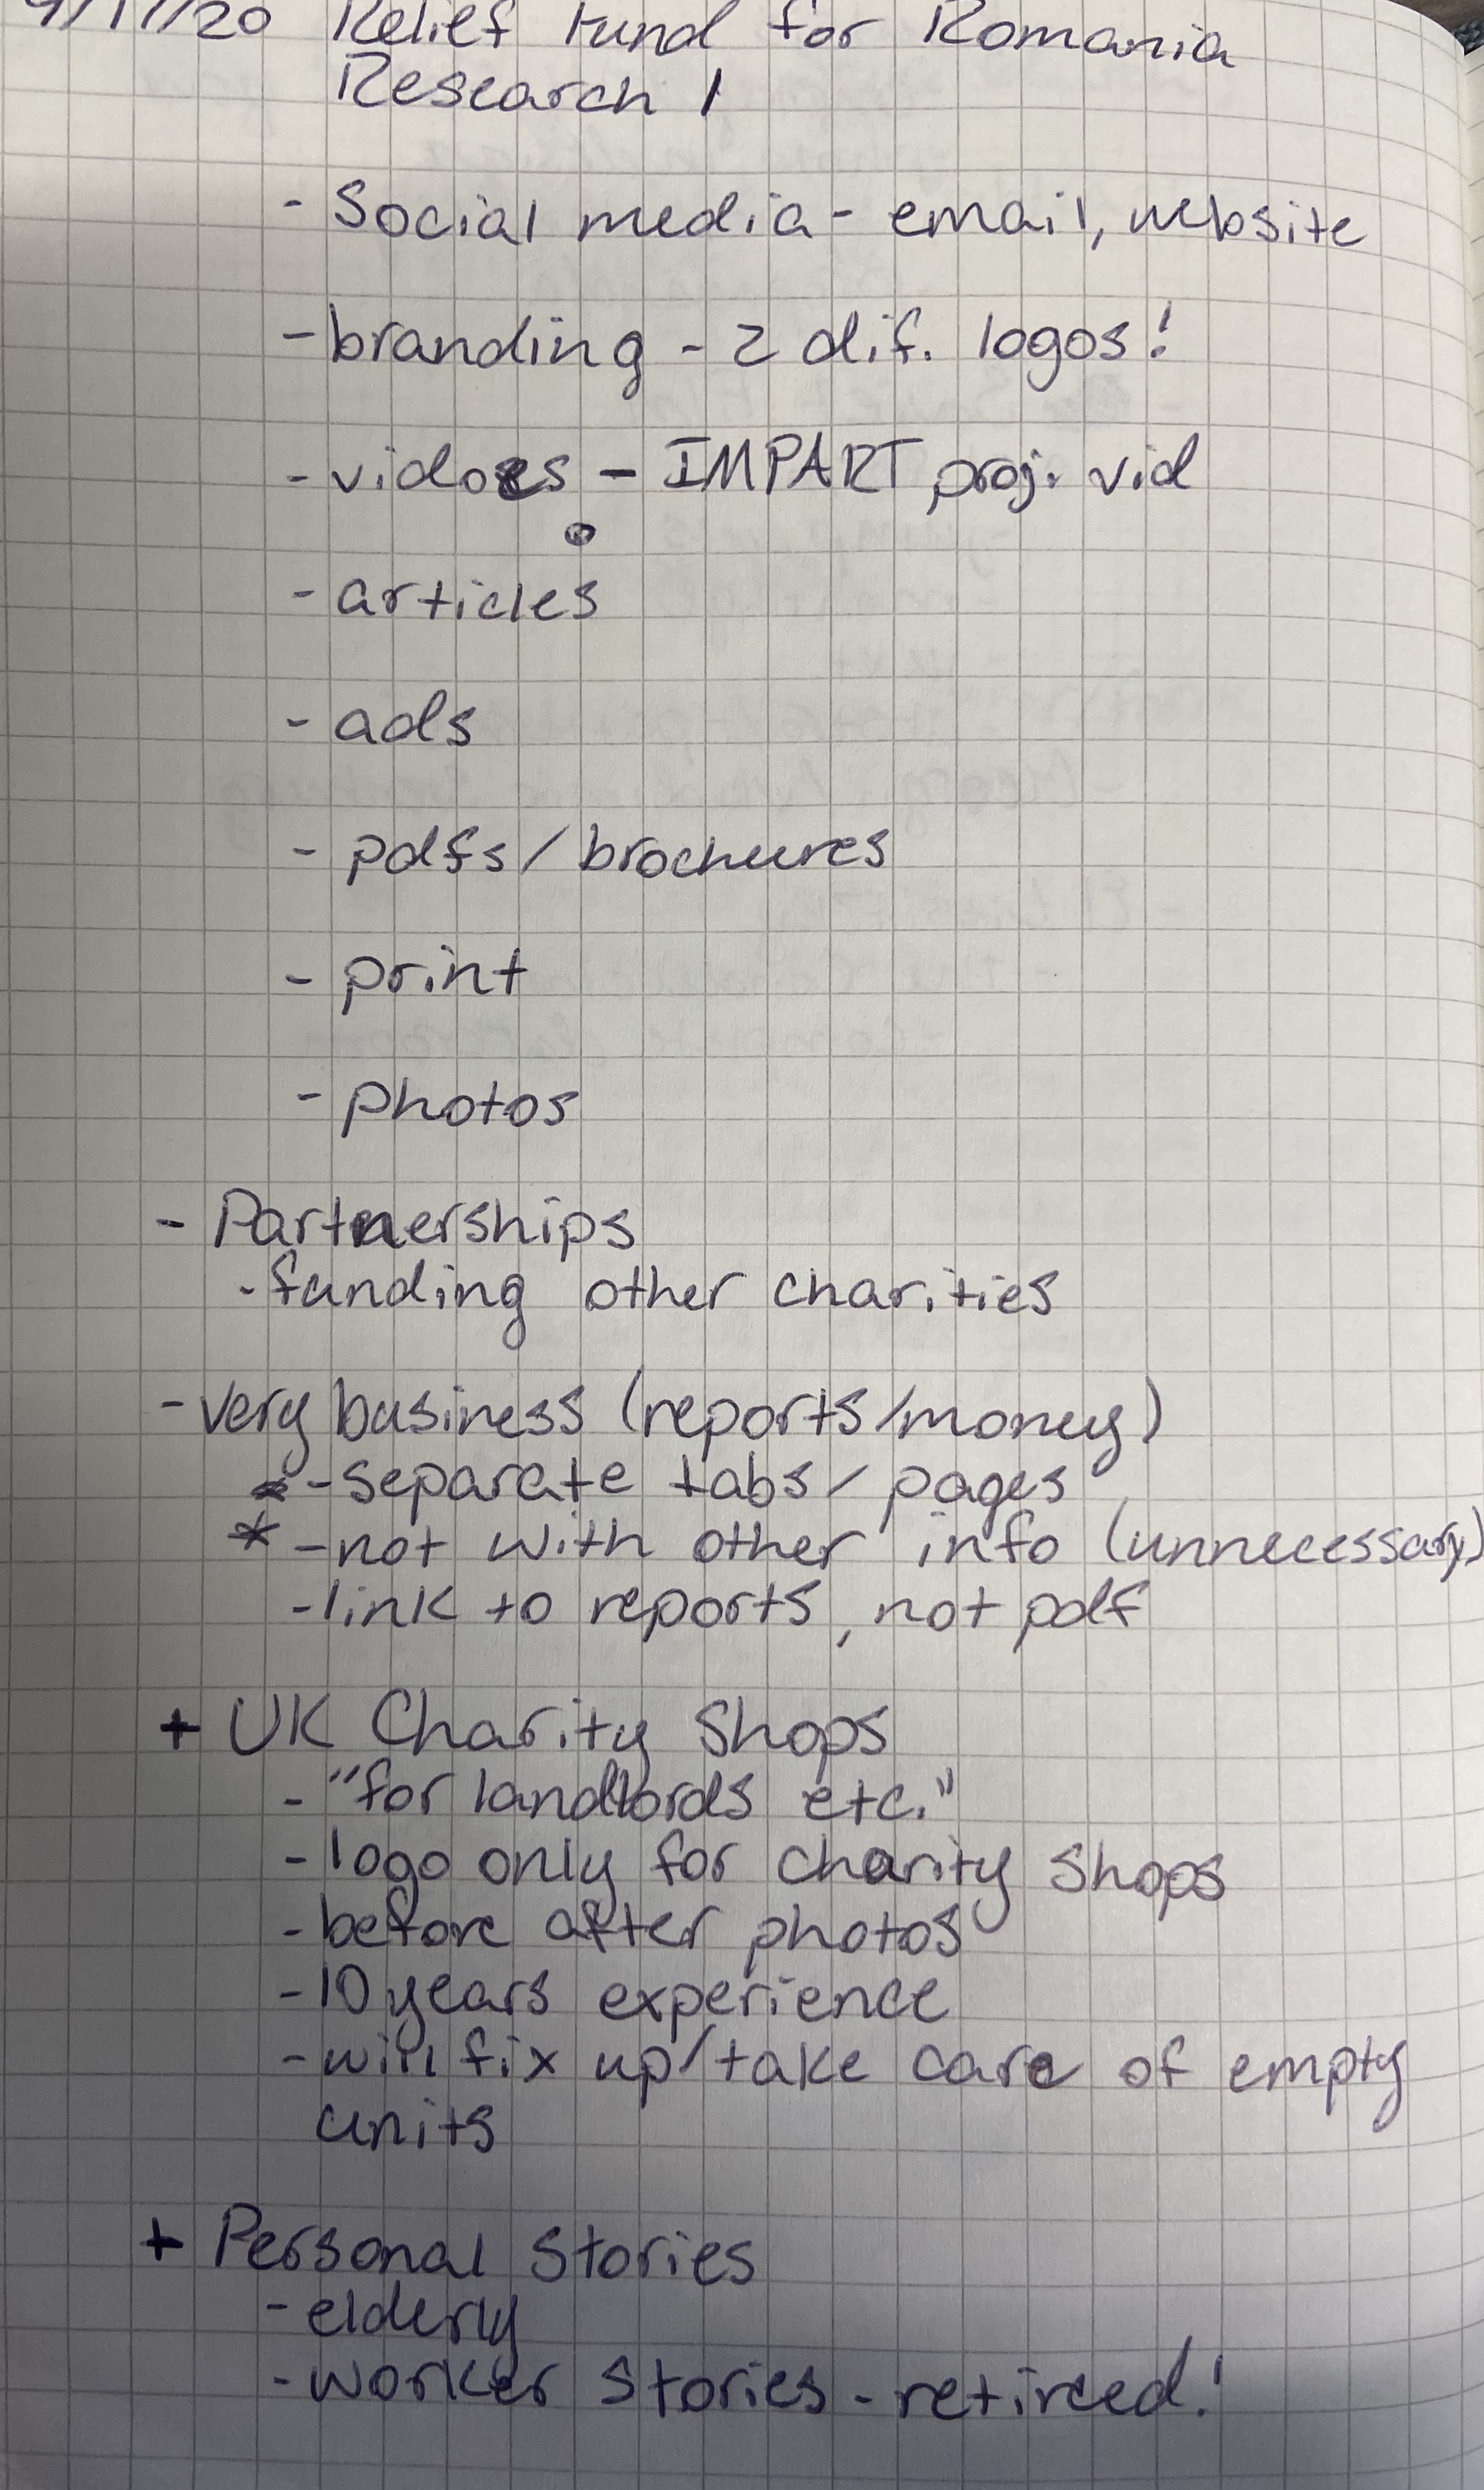 9/17/20 Relief Fund for Romania
Research 1
- Social media - email, website
- branding - 2 dif. logos!
- vidoes - IMPART proj. vid
- articles
- ads
- pdfs / brochures
- print
- photos
- Partnerships
- funding other charities
- very business (reports/money)
- separate tabs/pages
* - not with other info (unnecessary)
- link to reports, not pdf
+ UK Charity Shops
- "for landlords etc."
- logo only for charity shops
- before after photos
- 10 years experience
- will fix up/take care of empty
units
+ Personal Stories
- elderly
- worker stories - retireed!